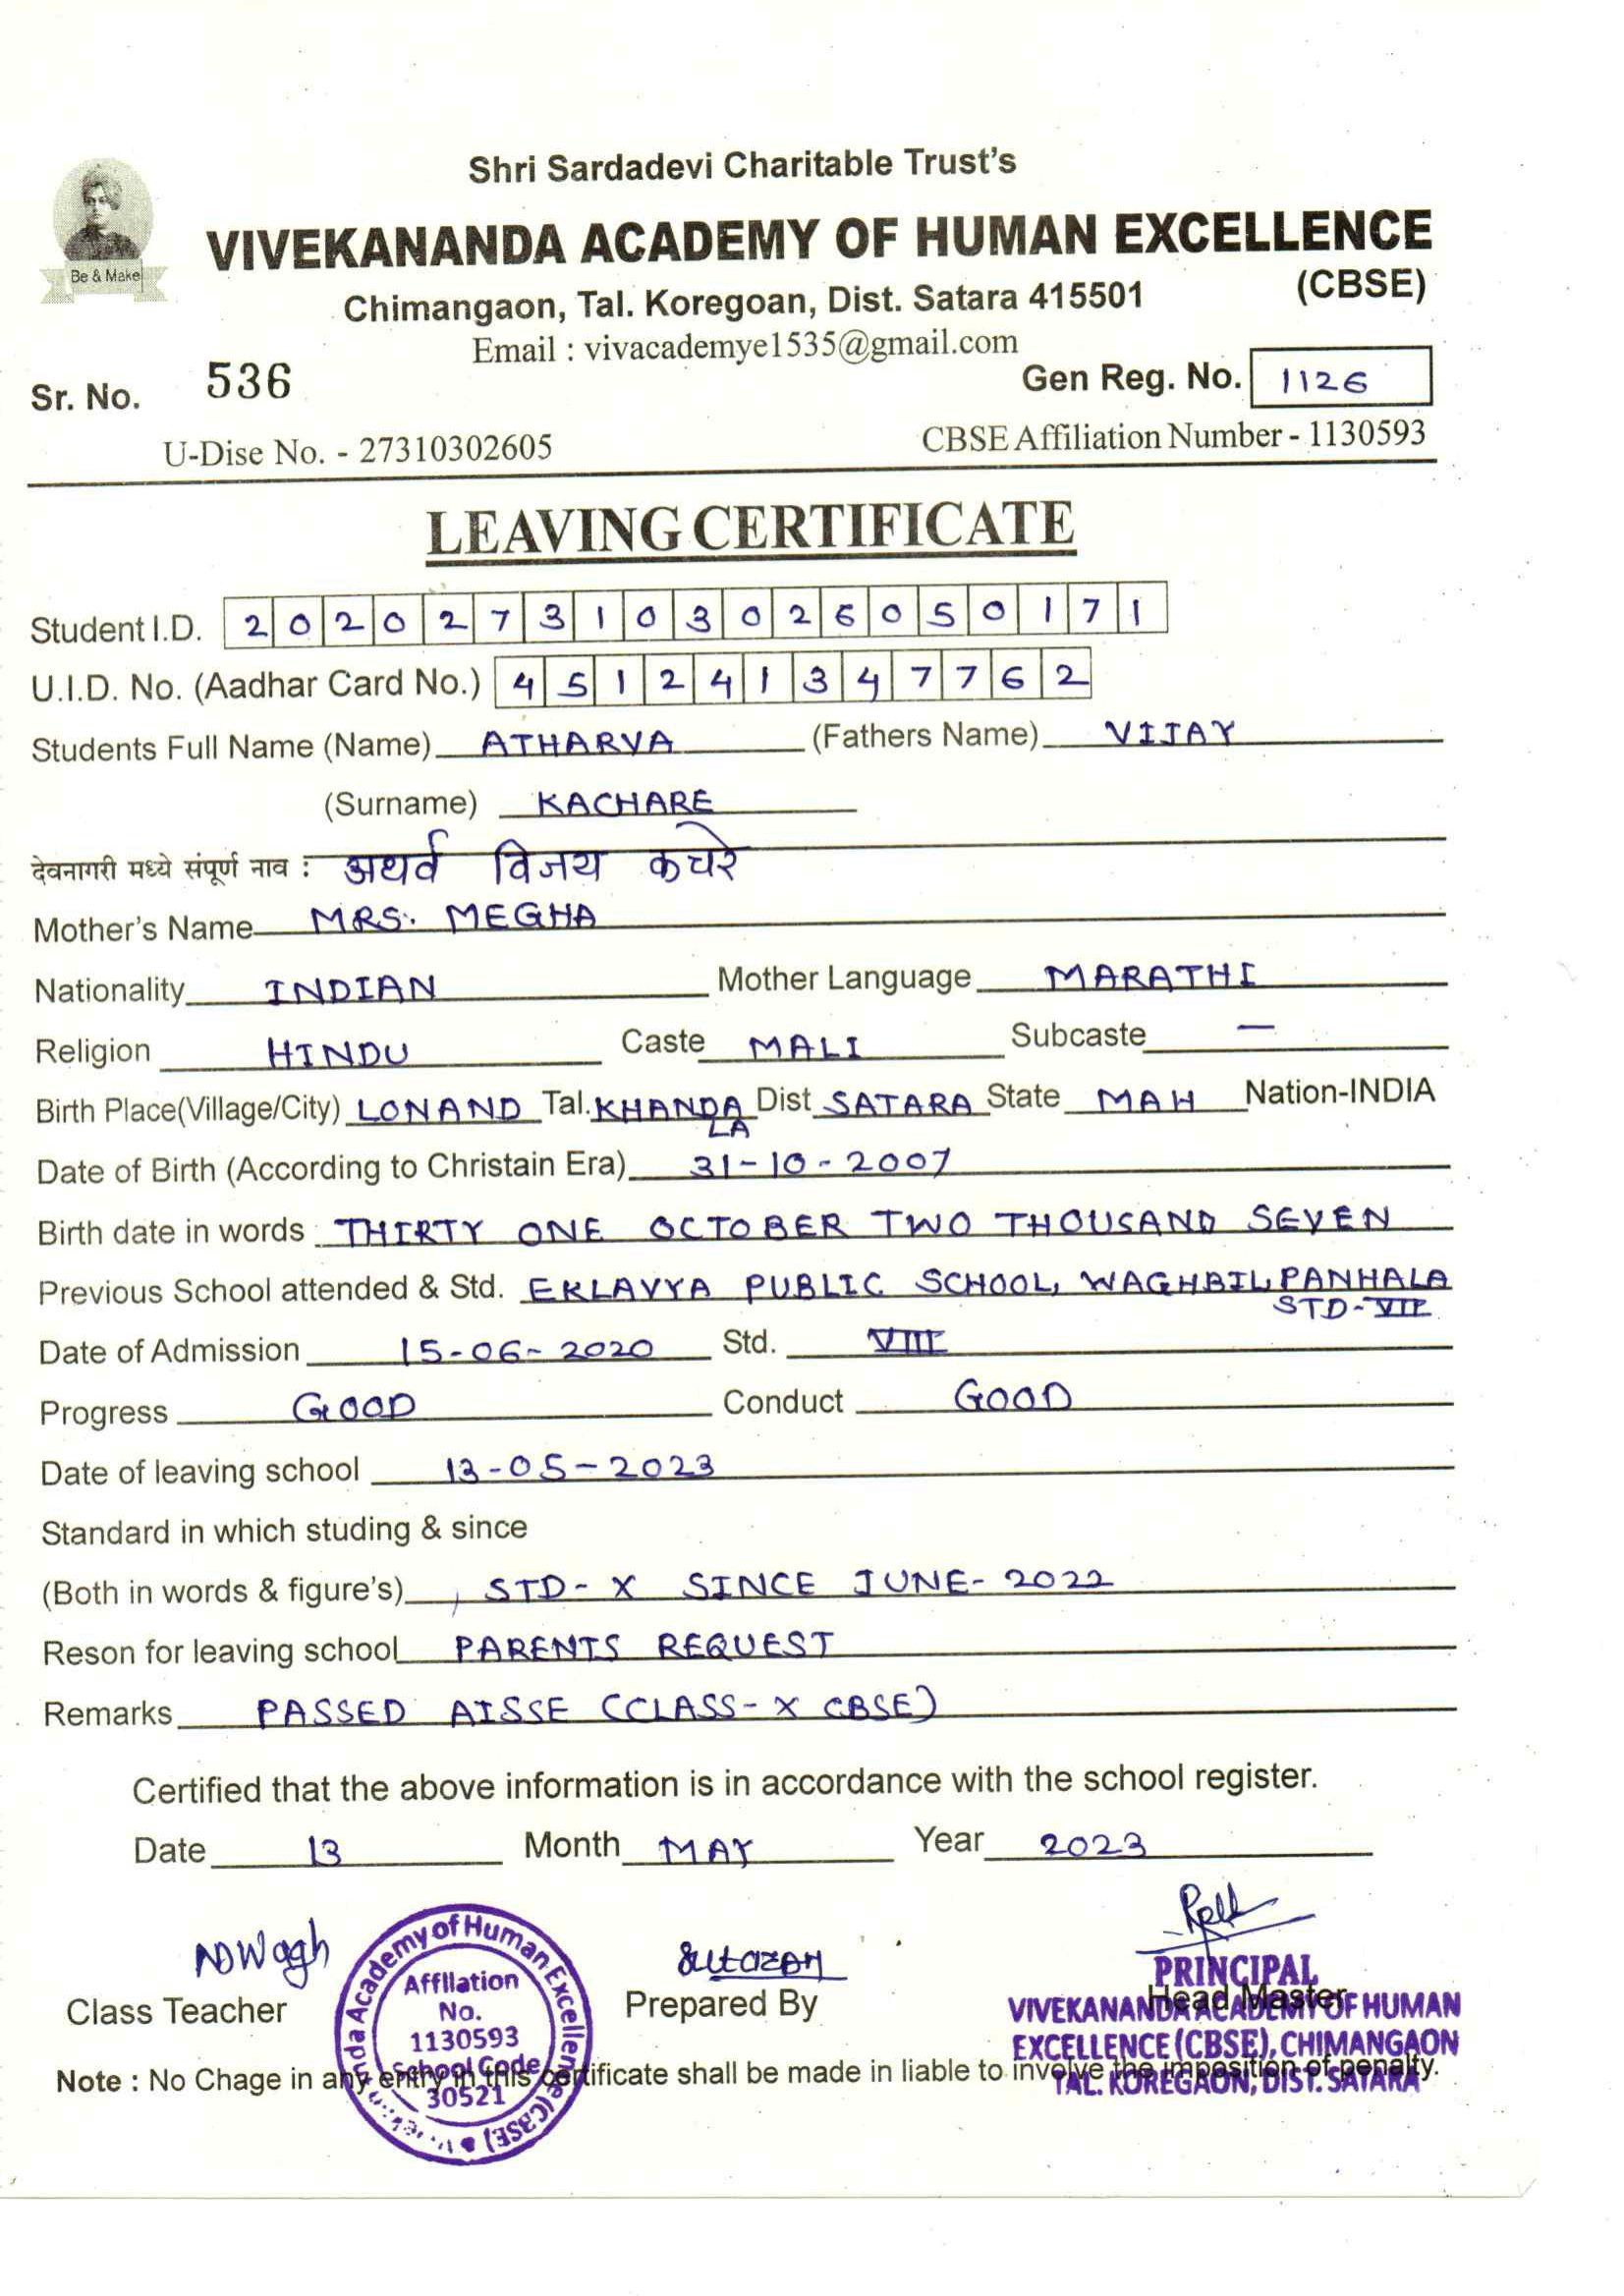 Shri Sardadevi Charitable Trust's
VIVEKANANDA ACADEMY OF HUMAN EXCELLENCE
(CBSE)
Be & Make
Chimangaon, Tal. Koregoan, Dist. Satara 415501
Email : vivacademye1535@gmail.com
Sr. No. 536 Gen Reg. No. 1126
U-Dise No. - 27310302605 CBSE Affiliation Number - 1130593
LEAVING CERTIFICATE
Student I.D. 2020273103026050171
U.I.D. No. (Aadhar Card No.) 451241347762
Students Full Name (Name) ATHARVA (Fathers Name) VIJAY
(Surname) KACHARE
देवनागरी मध्ये संपूर्ण नाव : अथर्व विजय कचरे
Mother's Name MRS. MEGHA
Nationality INDIAN Mother Language MARATHI
Religion HINDU Caste MALI Subcaste —
Birth Place(Village/City) LONAND Tal. KHANDALA Dist SATARA State MAH Nation-INDIA
Date of Birth (According to Christain Era) 31-10-2007
Birth date in words THIRTY ONE OCTOBER TWO THOUSAND SEVEN
Previous School attended & Std. EKLAVYA PUBLIC SCHOOL, WAGHBIL, PANHALA
STD-VII
Date of Admission 15-06-2020 Std. VIII
Progress GOOD Conduct GOOD
Date of leaving school 13-05-2023
Standard in which studing & since
(Both in words & figure's) , STD- X SINCE JUNE- 2022
Reson for leaving school PARENTS REQUEST
Remarks PASSED AISSE (CLASS-X CBSE)
Certified that the above information is in accordance with the school register.
Date 13 Month MAY Year 2023
Class Teacher Prepared By Head Master
Academy of Human Excellence (CBSE)
Affliation
No.
1130593
School Code
30521
PRINCIPAL
VIVEKANANDA ACADEMY OF HUMAN
EXCELLENCE (CBSE), CHIMANGAON
TAL. KOREGAON, DIST. SATARA
Note : No Chage in any entry in this certificate shall be made in liable to involve the imposition of penalty.